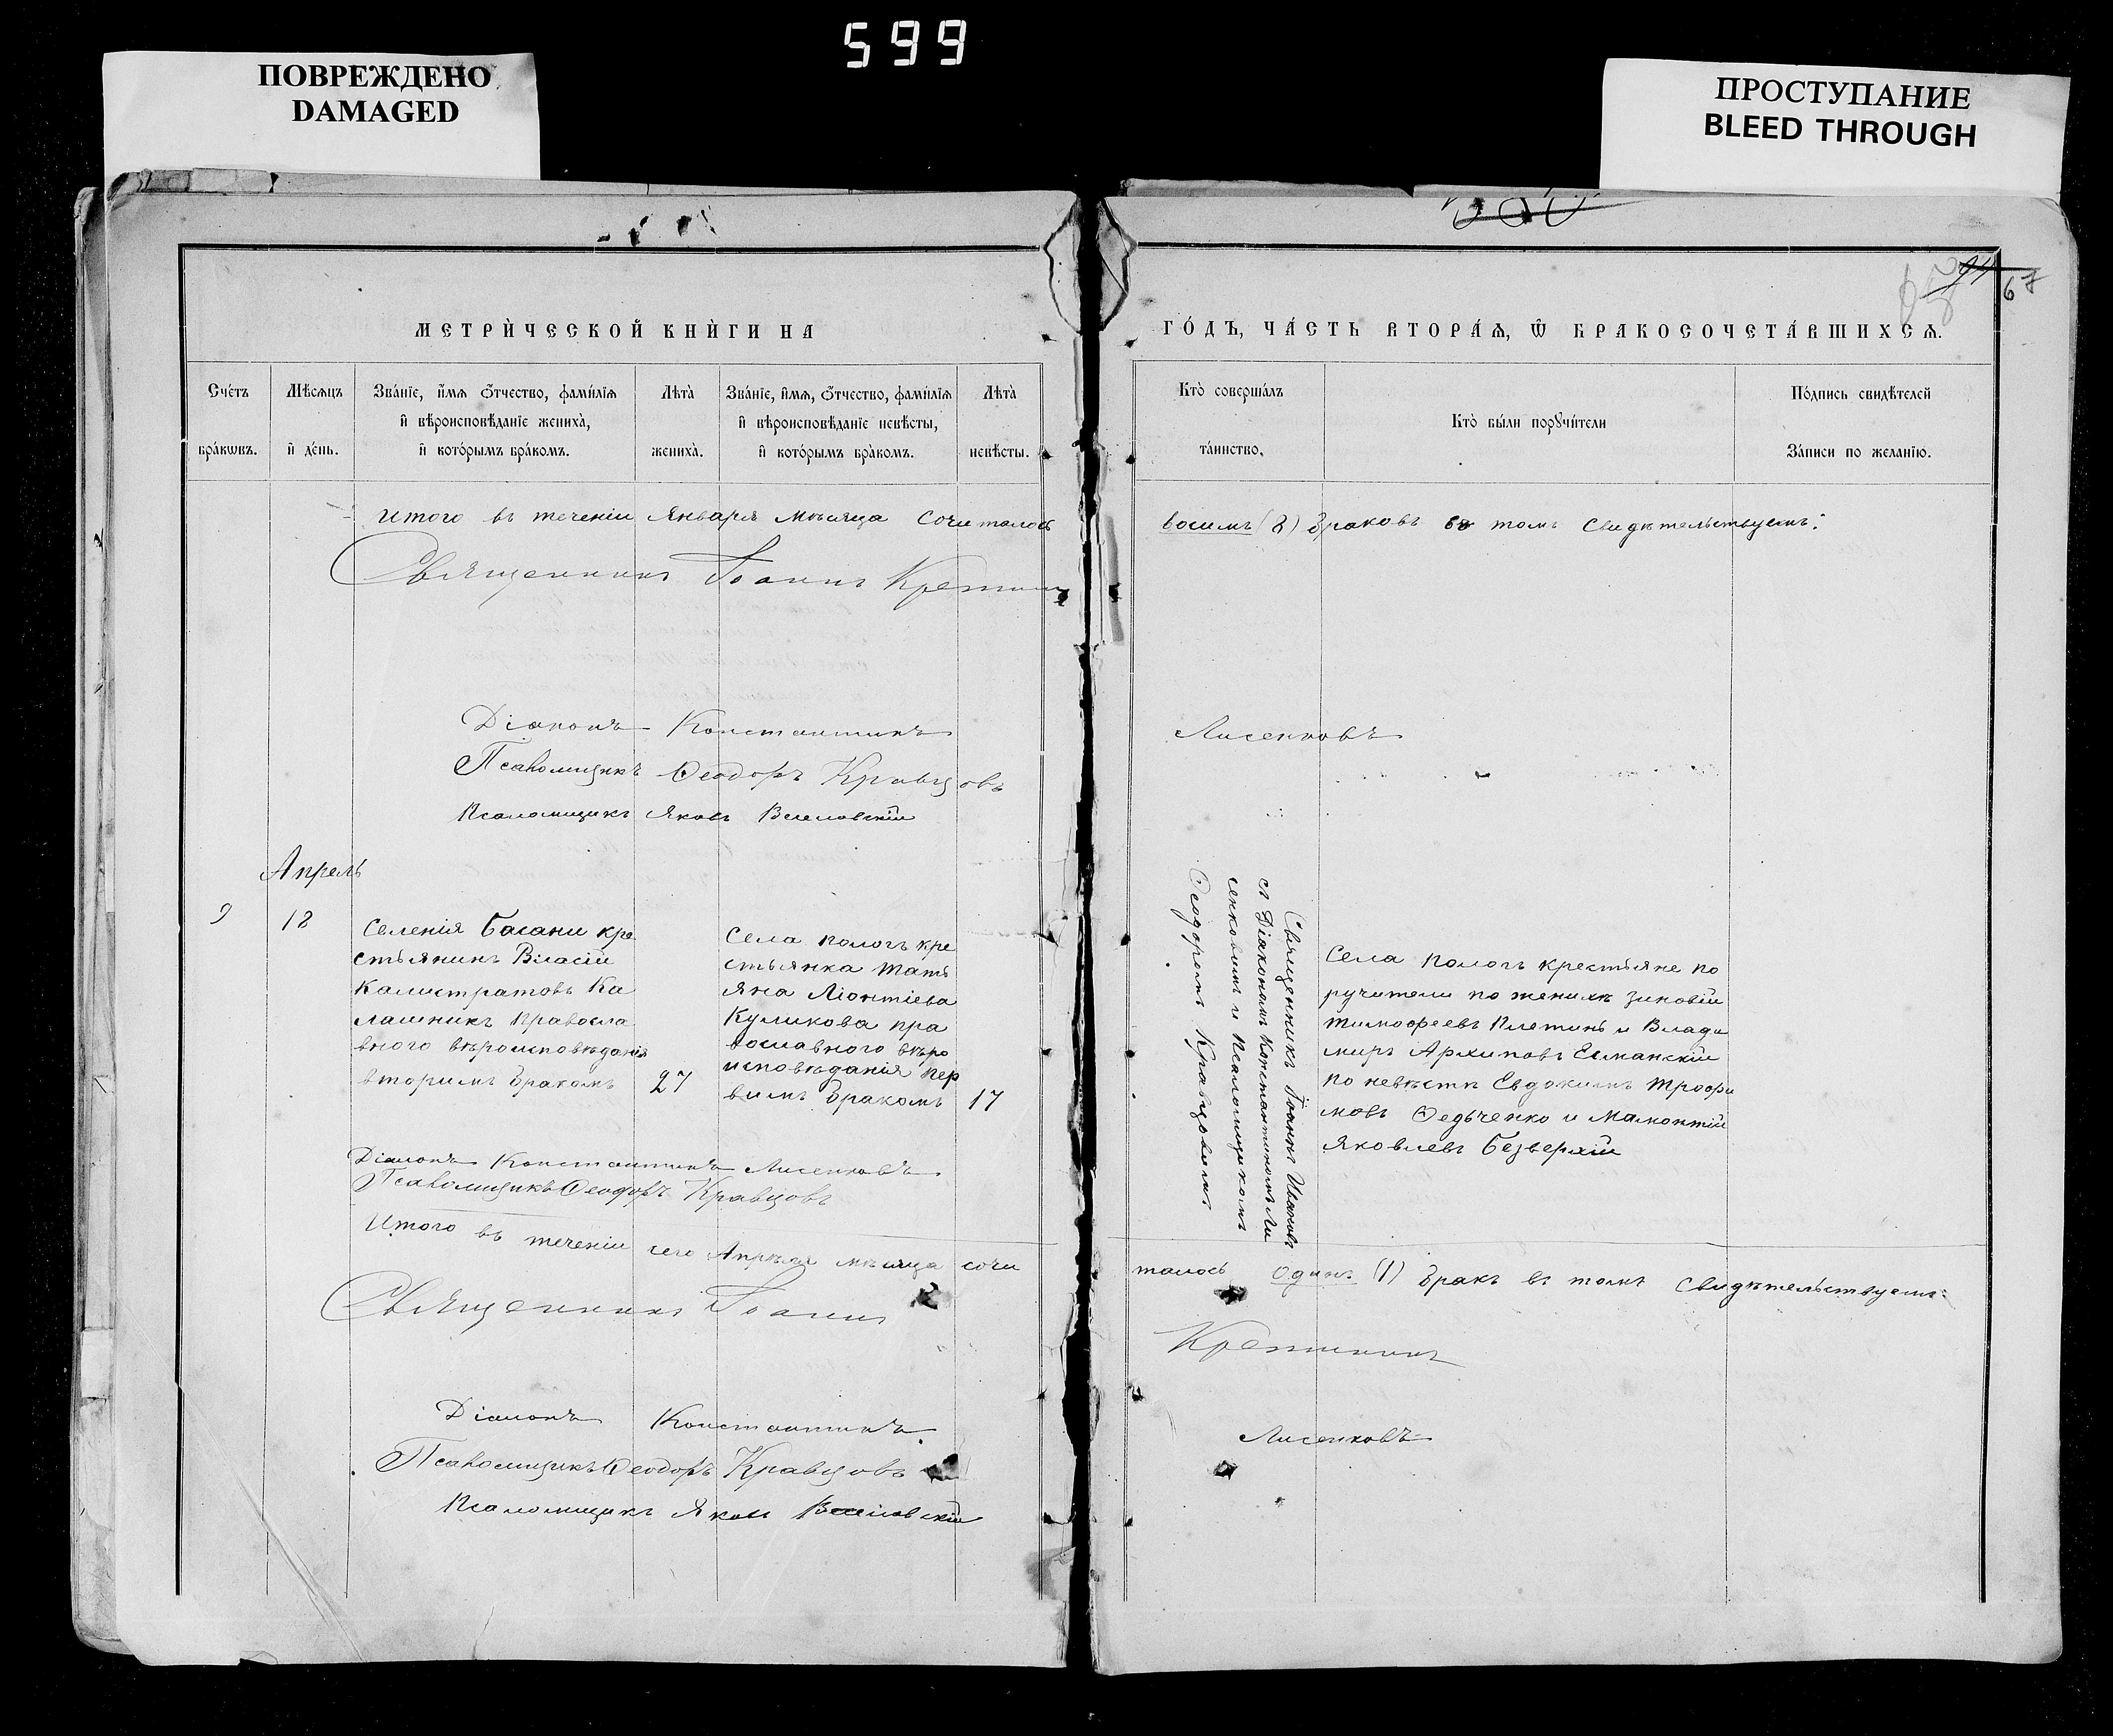 599
ПОВРЕЖДЕНО
DAMAGED
ПРОСТУПАНИЕ
BLEED THROUGH
67
МЕТРИ́ЧЕСКОЙ КНИ́ГИ НА
ГО́ДЪ, ЧА́СТЬ ВТОРА́Ѧ, Ѿ БРАКОСОЧЕТА́ВШИХСѦ.
Сче́тъ бра́кѡвъ.
Мѣ́сяцъ и де́нь.
Зва́нїе, и҆́мѧ ѻ҆́тчество, фами́лїѧ
и҆ вѣроисповѣ́данїе жениха̀,
и҆ кото́рымъ бра́комъ.
Лѣта̀ жениха̀.
Зва́нїе, и҆́мѧ, ѻ҆́тчество, фами́лїѧ
и҆ вѣроисповѣ́данїе невѣ́сты,
и҆ кото́рымъ бра́комъ.
Лѣта̀ невѣ́сты.
Кто̀ соверша́лъ
та́инство.
Кто̀ бы́ли порꙋчи́тели
По́дпись свидѣ́телей
За́писи по жела́нїю.
Итого въ теченіи Января мѣсяца сочиталось восимъ (8) браковъ въ томъ свидѣтельствуемъ:
Священникъ Іоаннъ
Діаконъ Константинъ Лисенковъ
Псаломщикъ Ѳеодоръ Кравцовъ
Псаломщикъ Яковъ
Апрель
9
18
Селенія Басани кре
стьянинъ Власій
Калистратовъ Ка
лашникъ правосла
вного вѣроисповѣданія
вторимъ бракомъ
27
Села Пологъ кре
стьянка Тать
яна Ліонтіева
Куликова пра
вославного вѣро
исповѣданія пер
вимъ бракомъ
17
Священникъ Іоаннъ Ивановъ
съ Діакономъ Константиномъ Ли
сенковимъ и Псаломщикомъ
Ѳеодоромъ Кравцовимъ
Села Пологъ крестьяне по
ручители по женихѣ Зиновій
Тимофеевъ Плетинь и Влади
миръ Архиповъ Есманскій
по невѣстѣ Евдокимъ Трофи
мовъ Ѳедьченко и Мамонтій
Яковлевъ Безверхій
Діаконъ Константинъ Лисенковъ
Псаломщикъ Ѳеодоръ Кравцовъ
Итого въ теченіи сего Апрѣля мѣсяца сочи
талось одинъ (1) бракъ въ томъ свидѣтельствуемъ:
Священникъ Іоаннъ
Діаконъ Константинъ Лисенковъ
Псаломщикъ Ѳеодоръ Кравцовъ
Псаломщикъ Яковъ